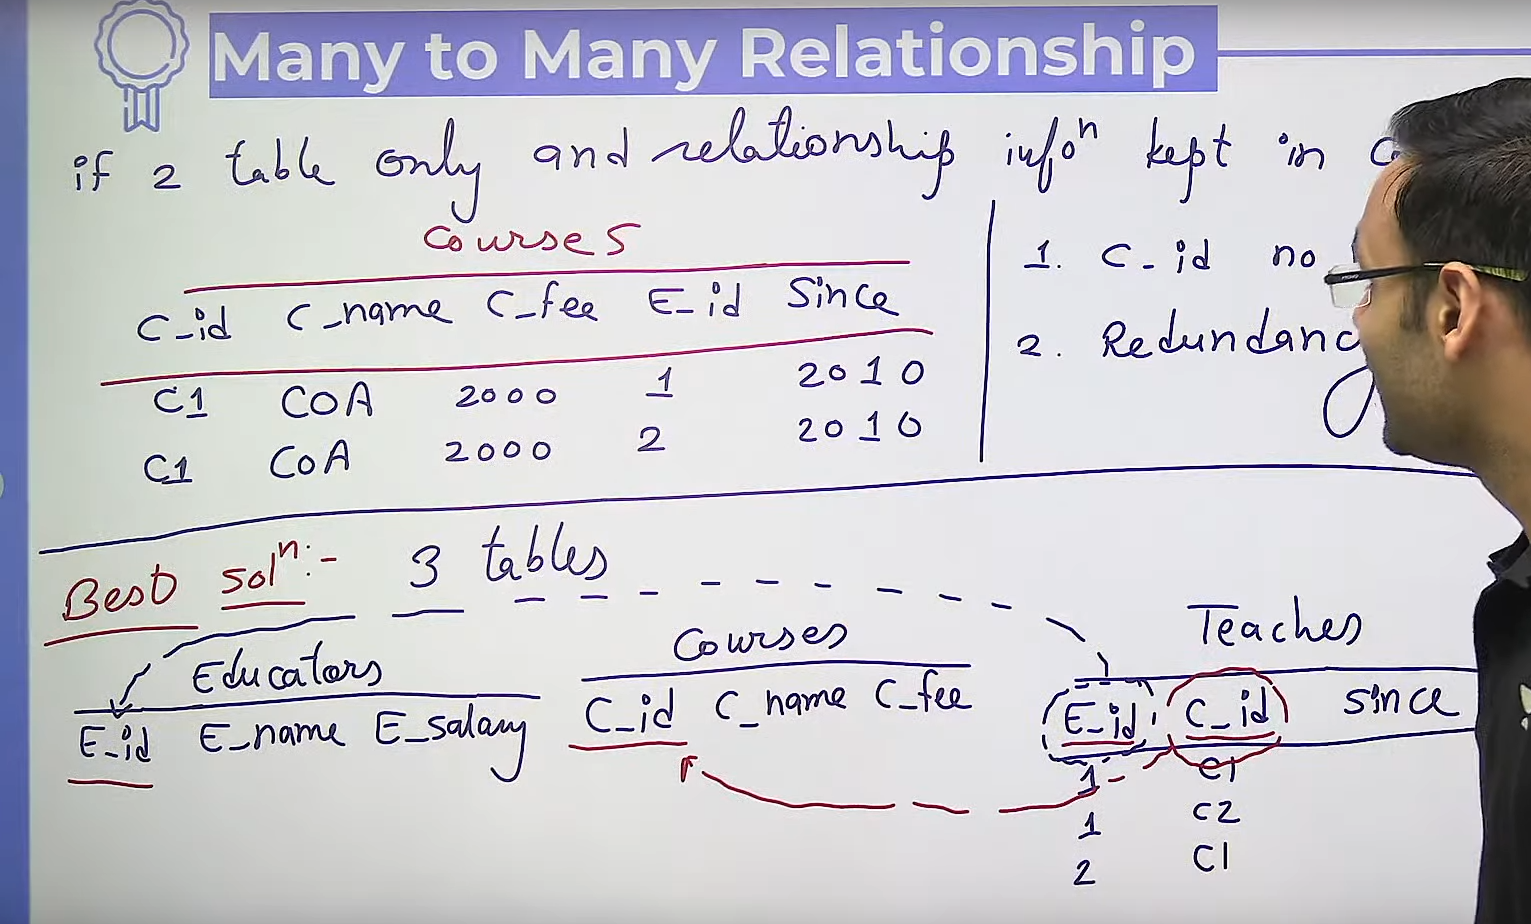 Many to Many Relationship
if 2 table only and relationship infoⁿ kept in
Courses
C_id C_name C_fee E_id Since
C1 COA 2000 1 2010
C1 COA 2000 2 2010
1. C_id no
2. Redundancy
Best solⁿ:- 3 tables
Educators
E_id E_name E_salary
Courses
C_id C_name C_fee
Teaches
E_id C_id since
1 C1
1 C2
2 C1